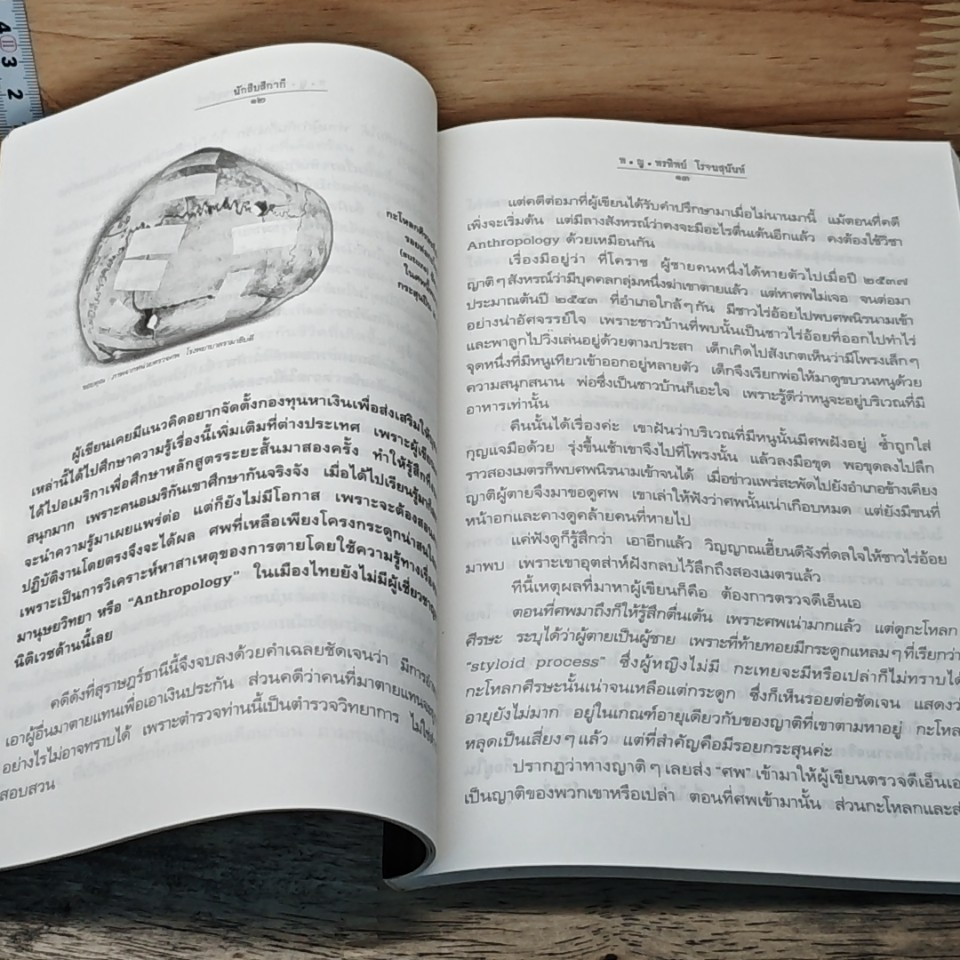 4
3
2
นักสืบสีกากี
๑๒
กะโหลกศีรษะ
รอยต่อ
(suture)
ในศพนี้
กระสุนปืน
ขอบคุณ : ภาพจากหน่วยตรวจศพ โรงพยาบาลรามาธิบดี
ผู้เขียนเคยมีแนวคิดอยากจัดตั้งกองทุนหาเงินเพื่อส่งเสริมให้
เหล่านี้ได้ไปศึกษาความรู้เรื่องนี้เพิ่มเติมที่ต่างประเทศ เพราะผู้เขียน
ได้ไปอเมริกาเพื่อศึกษาหลักสูตรระยะสั้นมาสองครั้ง ทำให้รู้สึก
สนุกมาก เพราะคนอเมริกันเขาศึกษากันจริงจัง เมื่อได้ไปเรียนรู้มาก็
จะนำความรู้มาเผยแพร่ต่อ แต่ก็ยังไม่มีโอกาส เพราะจะต้องสอน
ปฏิบัติงานโดยตรงจึงจะได้ผล ศพที่เหลือเพียงโครงกระดูกน่าสนใจ
เพราะเป็นการวิเคราะห์หาสาเหตุของการตายโดยใช้ความรู้ทางเรื่อง
มานุษยวิทยา หรือ “Anthropology” ในเมืองไทยยังไม่มีผู้เชี่ยวชาญ
นิติเวชด้านนี้เลย
คดีดังที่สุราษฎร์ธานีนี้จึงจบลงด้วยคำเฉลยชัดเจนว่า มีการ
เอาผู้อื่นมาตายแทนเพื่อเอาเงินประกัน ส่วนคดีว่าคนที่มาตายแทนจะ
อย่างไรไม่อาจทราบได้ เพราะตำรวจท่านนี้เป็นตำรวจวิทยาการ ไม่ใช่
สอบสวน
พ.ญ.พรทิพย์ โรจนสุนันท์
๑๓
แต่คดีต่อมาที่ผู้เขียนได้รับคำปรึกษามาเมื่อไม่นานมานี้ แม้ตอนที่คดี
เพิ่งจะเริ่มต้น แต่มีลางสังหรณ์ว่าคงจะมีอะไรตื่นเต้นอีกแล้ว คงต้องใช้วิชา
Anthropology ด้วยเหมือนกัน
เรื่องมีอยู่ว่า ที่โคราช ผู้ชายคนหนึ่งได้หายตัวไปเมื่อปี ๒๕๓๗
ญาติๆ สังหรณ์ว่ามีบุคคลกลุ่มหนึ่งฆ่าเขาตายแล้ว แต่หาศพไม่เจอ จนต่อมา
ประมาณต้นปี ๒๕๔๓ ที่อำเภอใกล้ๆ กัน มีชาวไร่อ้อยไปพบศพนิรนามเข้า
อย่างน่าอัศจรรย์ใจ เพราะชาวบ้านที่พบนั้นเป็นชาวไร่อ้อยที่ออกไปทำไร่
และพาลูกไปวิ่งเล่นอยู่ด้วยตามประสา เด็กเกิดไปสังเกตเห็นว่ามีโพรงเล็กๆ
จุดหนึ่งที่มีหนูเทียวเข้าออกอยู่หลายตัว เด็กจึงเรียกพ่อให้มาดูขบวนหนูด้วย
ความสนุกสนาน พ่อซึ่งเป็นชาวบ้านก็เอะใจ เพราะรู้ดีว่าหนูจะอยู่บริเวณที่มี
อาหารเท่านั้น
คืนนั้นได้เรื่องค่ะ เขาฝันว่าบริเวณที่มีหนูนั้นมีศพฝังอยู่ ซ้ำถูกใส่
กุญแจมือด้วย รุ่งขึ้นเช้าเขาจึงไปที่โพรงนั้น แล้วลงมือขุด พอขุดลงไปลึก
ราวสองเมตรก็พบศพนิรนามเข้าจนได้ เมื่อข่าวแพร่สะพัดไปยังอำเภอข้างเคียง
ญาติผู้ตายจึงมาขอดูศพ เขาเล่าให้ฟังว่าศพนั้นเน่าเกือบหมด แต่ยังมีขนที่
หน้าอกและคางดูคล้ายคนที่หายไป
แค่ฟังดูก็รู้สึกว่า เอาอีกแล้ว วิญญาณเฮี้ยนดีจังที่ดลใจให้ชาวไร่อ้อย
มาพบ เพราะเขาอุตส่าห์ฝังกลบไว้ลึกถึงสองเมตรแล้ว
ทีนี้เหตุผลที่มาหาผู้เขียนก็คือ ต้องการตรวจดีเอ็นเอ
ตอนที่ศพมาถึงก็ให้รู้สึกตื่นเต้น เพราะศพเน่ามากแล้ว แต่ดูกะโหลก
ศีรษะ ระบุได้ว่าผู้ตายเป็นผู้ชาย เพราะที่ท้ายทอยมีกระดูกแหลมๆ ที่เรียกว่า
“styloid process” ซึ่งผู้หญิงไม่มี กะเทยจะมีหรือเปล่าก็ไม่ทราบได้
กะโหลกศีรษะนั้นเน่าจนเหลือแต่กระดูก ซึ่งก็เห็นรอยต่อชัดเจน แสดงว่า
อายุยังไม่มาก อยู่ในเกณฑ์อายุเดียวกับของญาติที่เขาตามหาอยู่ กะโหลก
หลุดเป็นเสี่ยงๆ แล้ว แต่ที่สำคัญคือมีรอยกระสุนค่ะ
ปรากฏว่าทางญาติๆ เลยส่ง “ศพ” เข้ามาให้ผู้เขียนตรวจดีเอ็นเอ
เป็นญาติของพวกเขาหรือเปล่า ตอนที่ศพเข้ามานั้น ส่วนกะโหลกและ